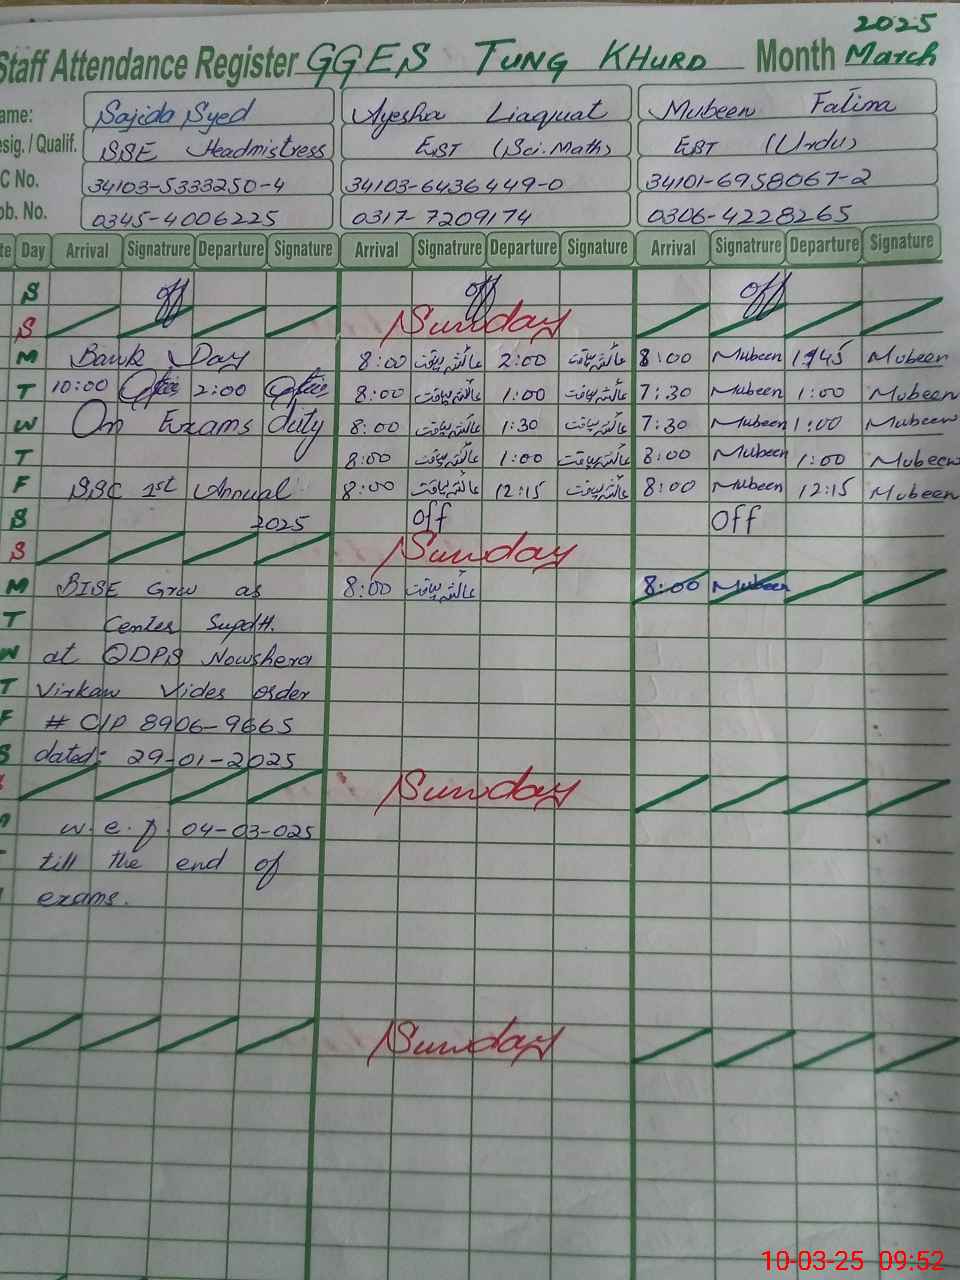 2025
Staff Attendance Register GGES TUNG KHURD Month March
ame: Sajida Syed Ayesha Liaquat Mubeen Fatima
esig. / Qualif. SSE Headmistress EST (Sci.Math) EST (Urdu)
C No. 34103-5333250-4 34103-6436449-0 34101-6958067-2
ob. No. 0345-4006225 0317-7209174 0306-4228265
te Day Arrival Signatrure Departure Signature Arrival Signatrure Departure Signature Arrival Signatrure Departure Signature
S off off off
S Sunday
M Bank Day 8:00 2:00 8:00 Mubeen 1:45 Mubeen
T 10:00 2:00 8:00 1:00 7:30 Mubeen 1:00 Mubeen
W On Exams duty 8:00 1:30 7:30 Mubeen 1:00 Mubeen
T 8:00 1:00 8:00 Mubeen 1:00 Mubeen
F SSC 1st Annual 8:00 12:15 8:00 Mubeen 12:15 Mubeen
S 2025 off off
S Sunday
M BISE Grw as 8:00 8:00 Mubeen
T Center Supdtt.
W at QDPS Nowshera
T Virkaw Vides order
F # C/P 8906-9665
S dated: 29-01-2025
Sunday
w.e.f 04-03-025
till the end of
exams.
Sunday
10-03-25 09:52